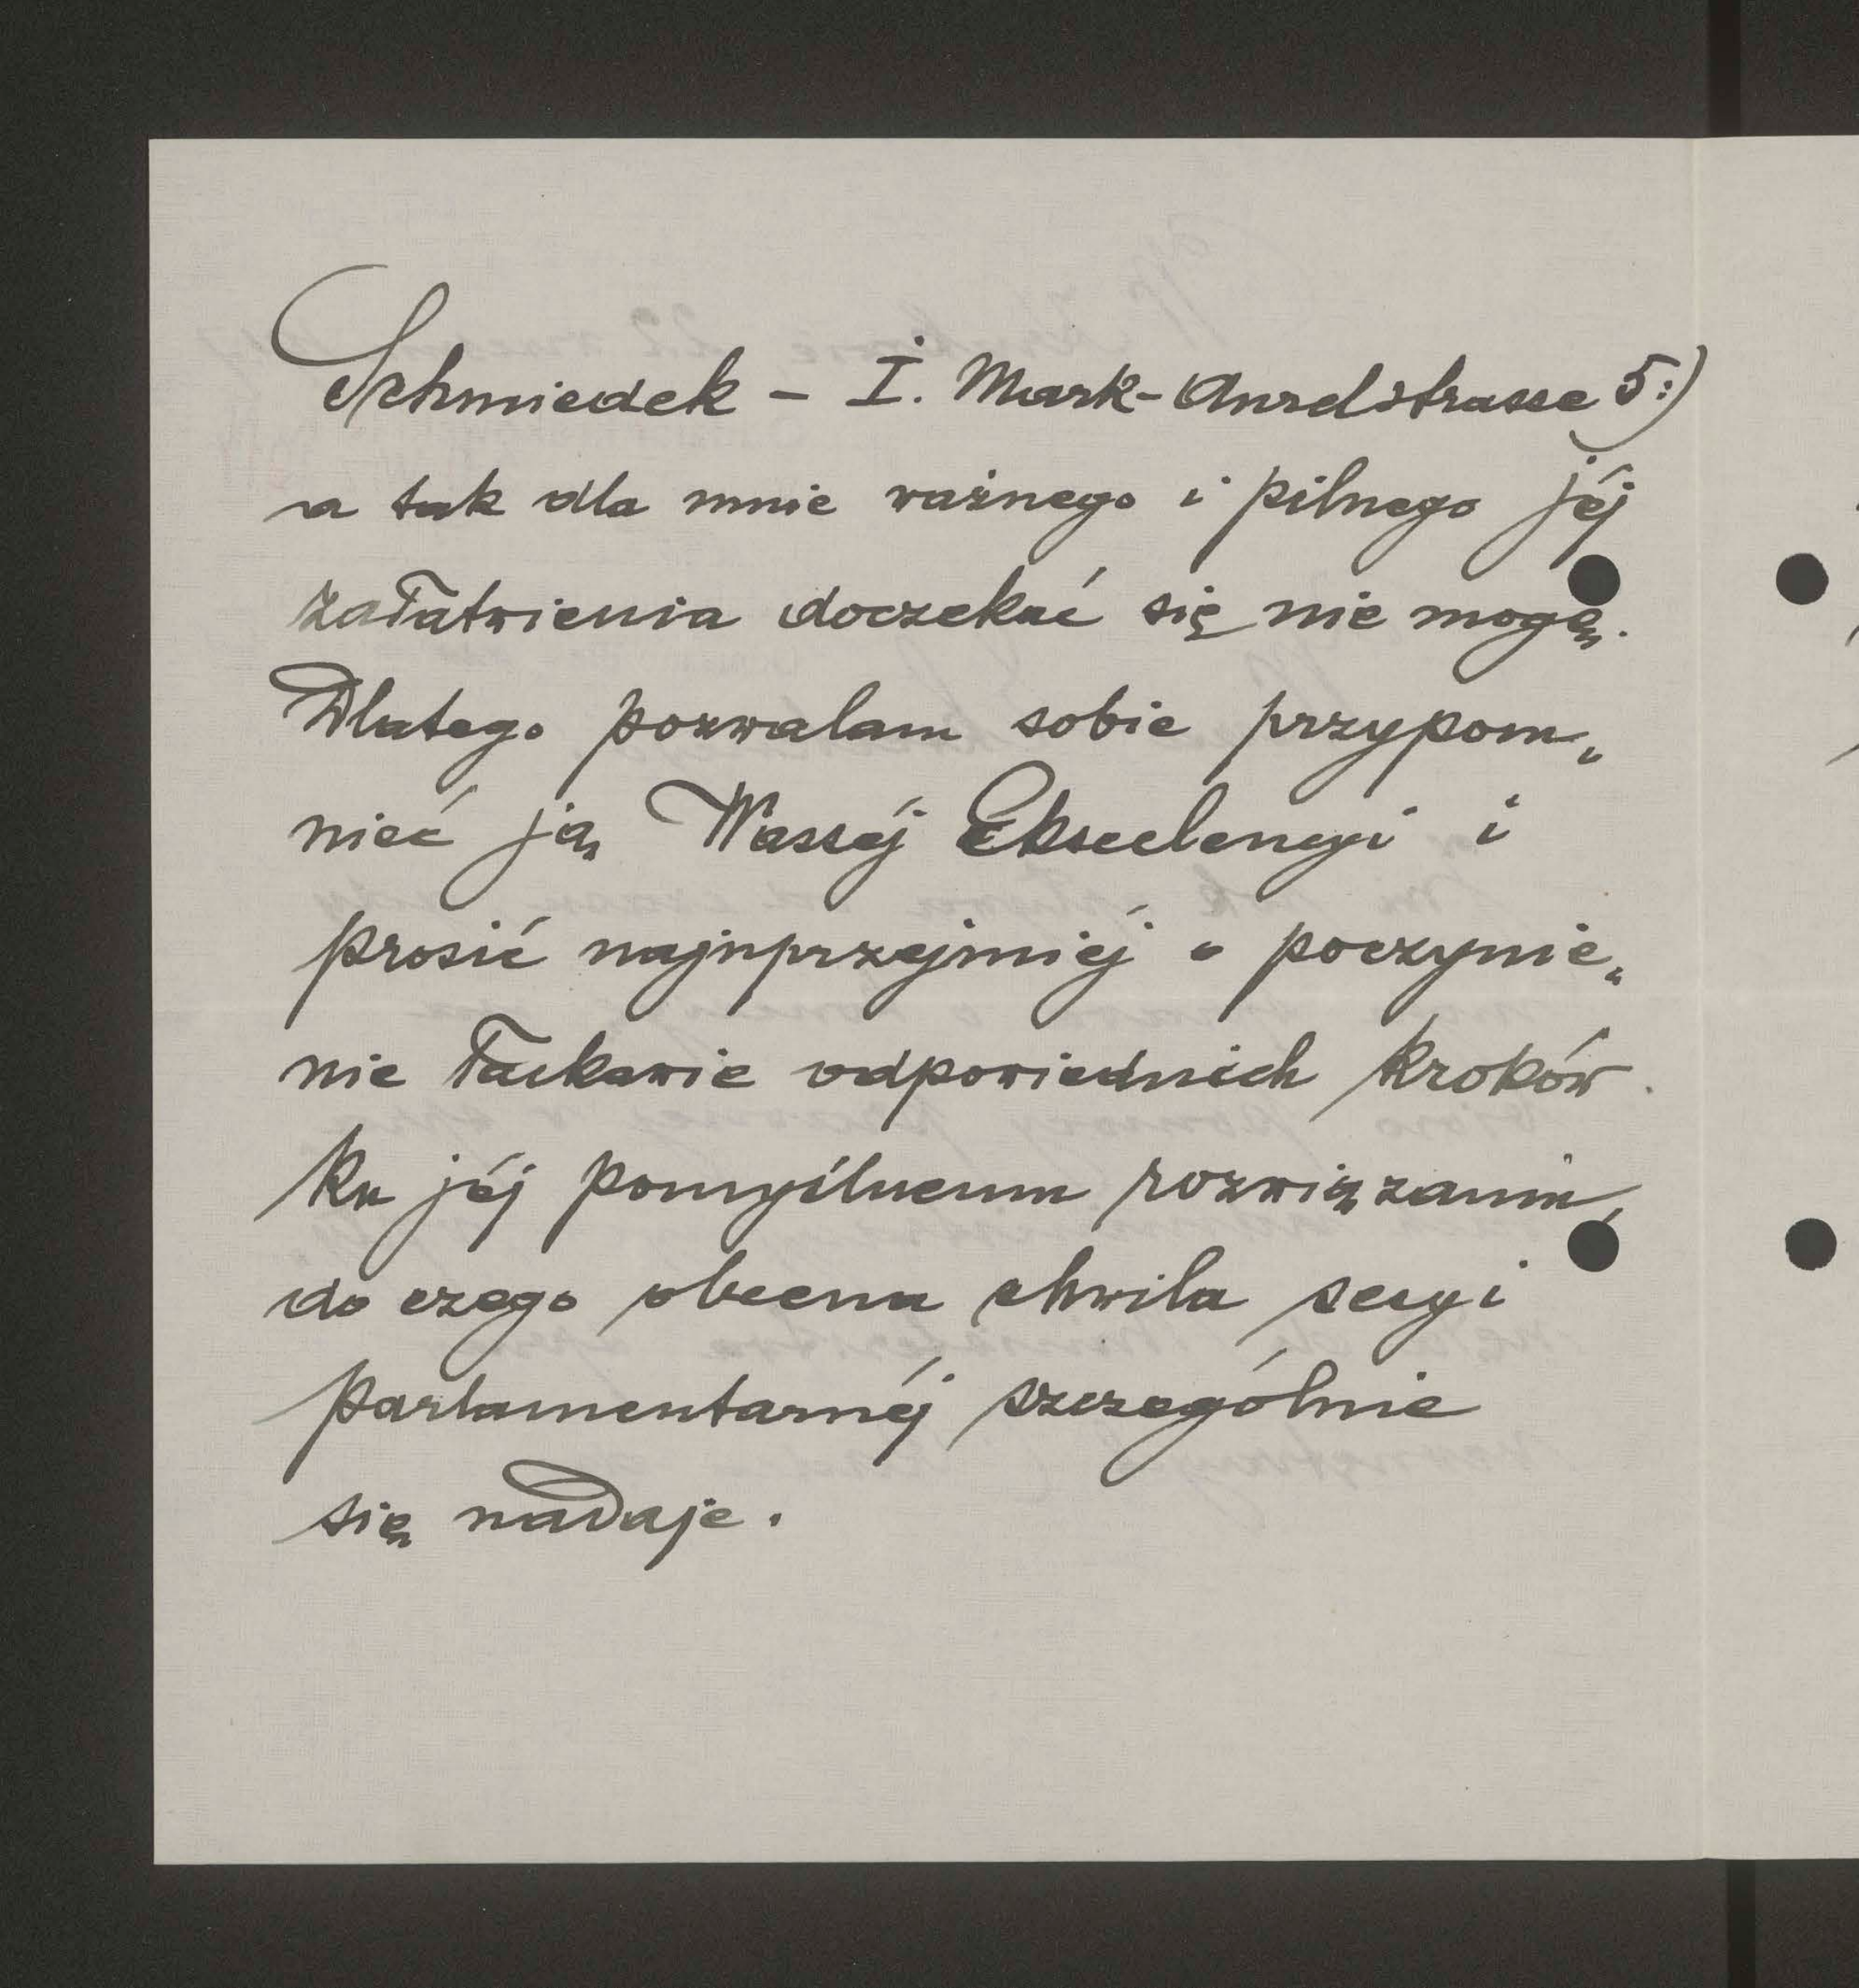 Schmiedek – I. Mark-Aurelstrasse 5:)
a tak dla mnie ważnego i pilnego jéj
załatwienia doczekać się nie mogę.
Dlatego pozwalam sobie przypom„
nieć ją Waszéj Ekscelencyi i
prosić najuprzejmiéj o poczynie„
nie łaskawie odpowiednich kroków
ku jéj pomyślnemu rozwiązaniu,
do czego obecna chwila sesyi
parlamentarnéj szczególnie
się nadaje.